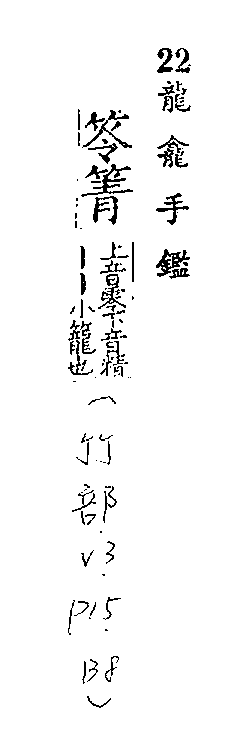 22龍龕手鑑
笭箐
上音零下音精
丨丨小籠也
(竹部.v3.p15.B8)